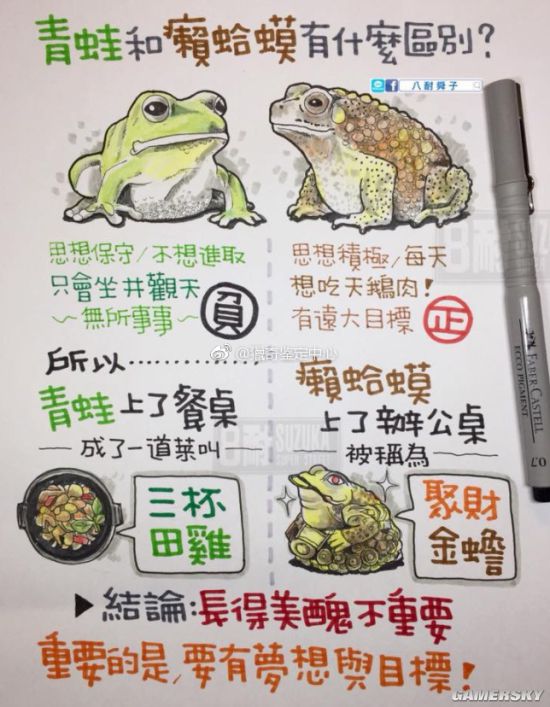 青蛙和癩蛤蟆有什麼區別?
八耐舜子
思想保守/不想進取
只會坐井觀天
~無所事事~
負
思想積極/每天
想吃天鵝肉!
有遠大目標
正
所以············
青蛙上了餐桌
成了一道菜叫
三杯
田雞
癩蛤蟆
上了辦公桌
被稱為
聚財
金蟾
▶結論:長得美醜不重要
重要的是,要有夢想與目標!
FABER-CASTELL
ECCO PIGMENT
0.7
SUZUKA
GAMERSKY